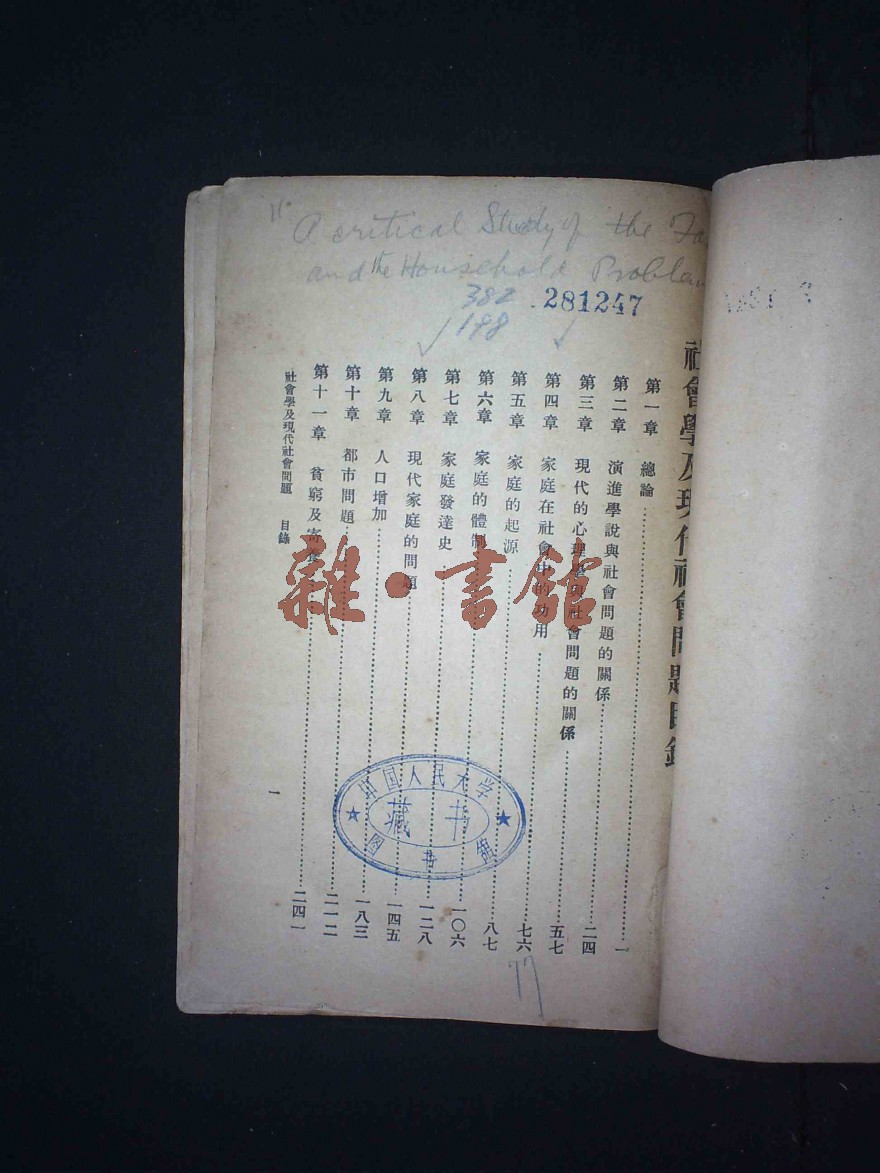 A critical Study of the
and the Household Problem
382
198
281247
社會學及現代社會問題目錄
第一章 總論……一
第二章 演進學說與社會問題的關係……二四
第三章 現代的心理學與社會問題的關係……五七
第四章 家庭在社會中的功用……七六
第五章 家庭的起源……八七
第六章 家庭的體制……一〇六
第七章 家庭發達史……一二八
第八章 現代家庭的問題……一四五
第九章 人口增加……一八三
第十章 都市問題……二一二
第十一章 貧窮及寄……二四一
社會學及現代社會問題 目錄
一
中国人民大学
藏书
图书馆
77
雜·書館